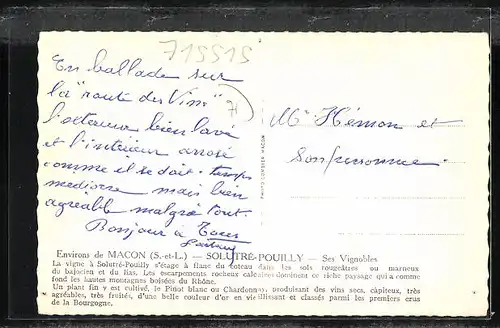 715515
En ballade sur
la "route des Vins"
l'extérieur bien lavé
et l'intérieur arrosé
comme il se doit - temps
médiocre mais bien
agréable malgré tout.
Bonjour à Tous
7
Mr Hémon et
son personnel
Environs de MACON (S.-et-L.) — SOLUTRÉ-POUILLY — Ses Vignobles
La vigne à Solutré-Pouilly s'étage à flanc du coteau dans les sols rougeâtres ou marneux
du bajocien et du lias. Les escarpements rocheux calcaires dominent ce riche paysage qui a comme
fond les hautes montagnes boisées du Rhône.
Un plant fin y est cultivé, le Pinot blanc ou Chardonnay, produisant des vins secs, capiteux, très
agréables, très fruités, d'une belle couleur d'or en vieillissant et classés parmi les premiers crus
de la Bourgogne.